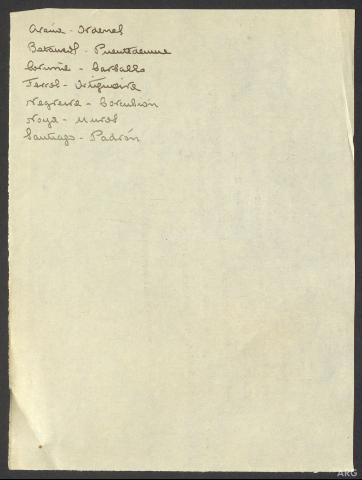 Arzúa - Ordenes
Betanzos - Puentedeume
Coruña - Carballo
Ferrol - Ortigueira
Negreira - Corcubión
Noya - Muros
Santiago - Padrón
ARG